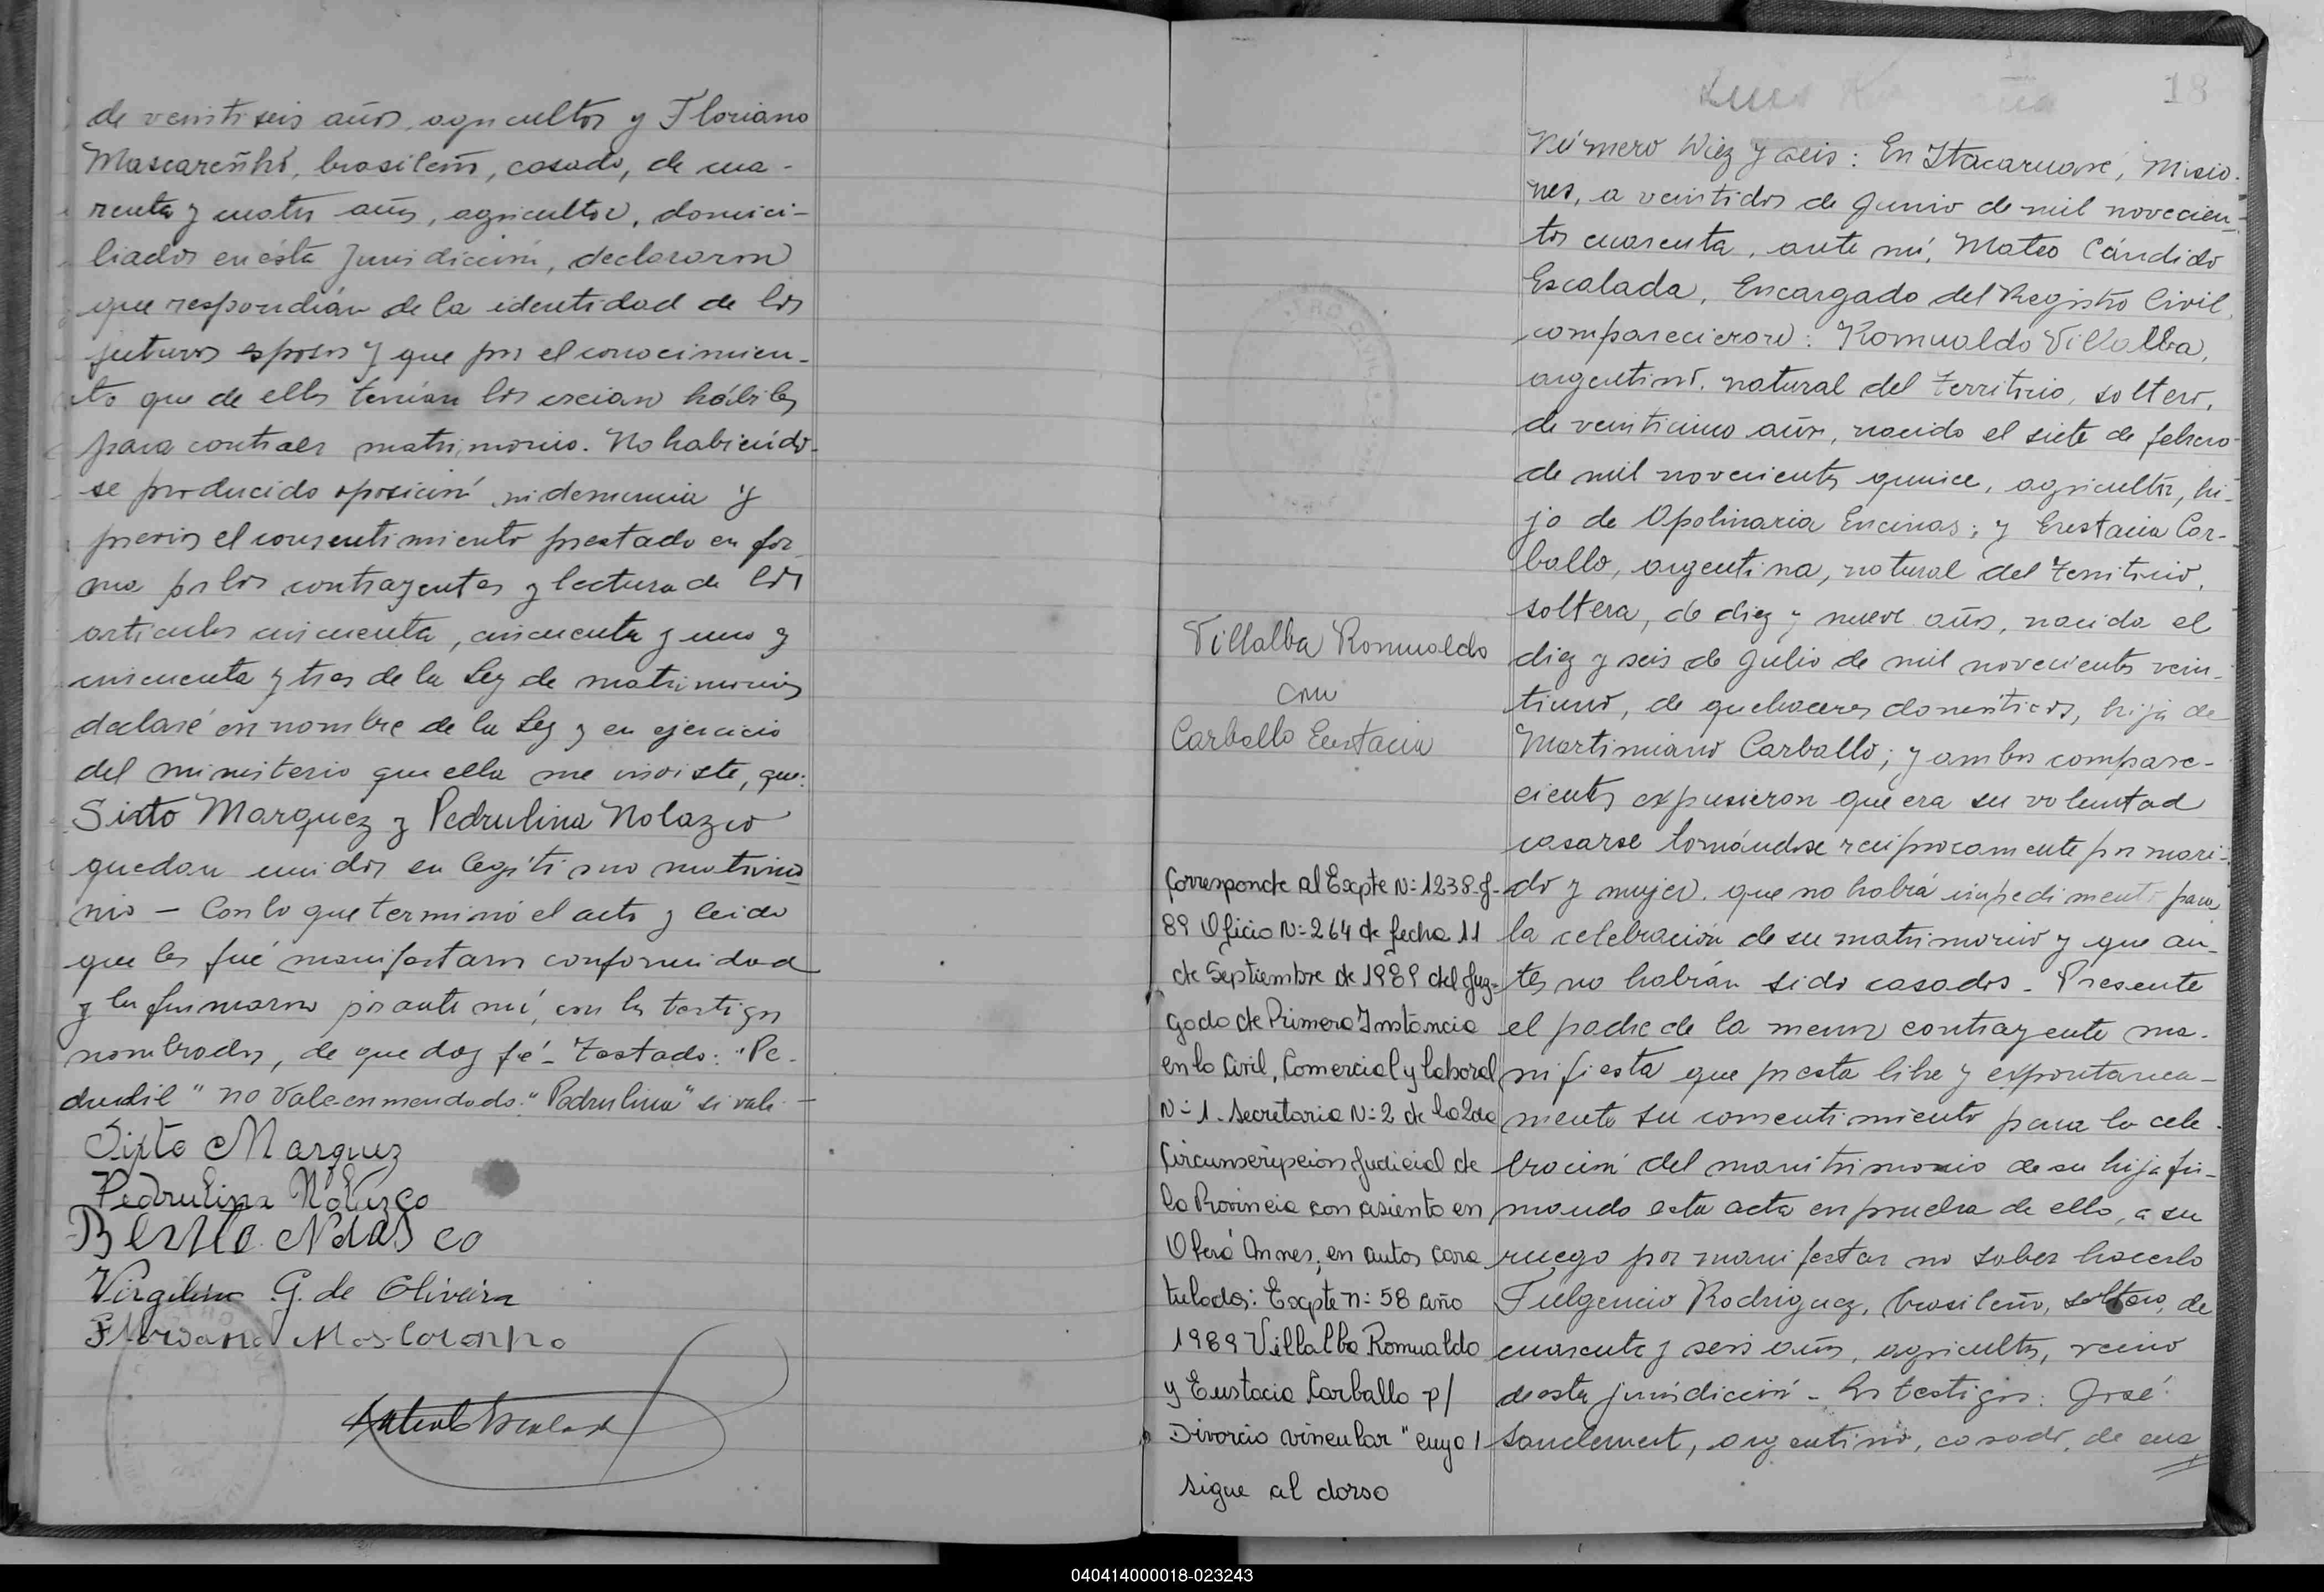 de veintiseis años, agricultor y Floriano
Mascareñhó, brasileño, casado, de cua-
renta y cuatro años, agricultor, domici-
liados en ésta Jurisdicción, declararon
que respondían de la identidad de los
futuros esposos y que por el conocimien-
to que de ellos tenían los creían hábiles
para contraer matrimonio. No habiéndo-
se producido oposición ni denuncia y
previo el consentimiento prestado en for
ma por los contrayentes y lectura de los
artículos cincuenta, cincuenta y uno y
cincuenta y tres de la Ley de matrimonio
declaré en nombre de la Ley y en ejercicio
del ministerio que ella me inviste, que:
Sixto Marquez y Pedrulina Nolazco
quedan unidos en legítimo matrimo
nio - Con lo que terminó el acto y leido
que les fué manifestaron conformidad
y la firmaron por ante mí, con los testigos
nombrados, de que doy fé - Testado: "Pe-
drulil" no vale enmendado: "Pedrulina" si vale -
Sixto Marquez
Pedrulina Nolazco
Nolasco
Virgilino G. de Oliveira
18
Número Diez y seis: En Itacaruaré, Misio-
nes, a veintidos de Junio de mil novecien-
tos cuarenta, ante mí, Mateo Cándido
Escalada, Encargado del Registro Civil,
comparecieron: Romualdo Villalba,
argentino, natural del Territorio, soltero,
de veinticinco años, nacido el siete de febrero
de mil novecientos quince, agricultor, hi-
jo de Apolinaria Encinas; y Eustacia Car-
ballo, argentina, natural del Territorio,
soltera, de diez y nueve años, nacida el
diez y seis de Julio de mil novecientos vein-
tiuno, de quehaceres domésticos, hija de
Martimiano Carballo; y ambos compare-
cientes expusieron que era su voluntad
casarse tomándose recíprocamente por mari-
do y mujer. que no había impedimento para
la celebración de su matrimonio y que an-
tes no habían sido casados - Presente
el padre de la menor contrayente ma-
nifiesta que presta libre y expontanea-
mente su consentimiento para la cele-
bración del manitrimonio de su hija fir-
mando esta acta en prueba de ello, a su
ruego por manifestar no saber hacerlo
Fulgencio Rodriguez, brasileño, soltero, de
cuarenta y seis años, agricultor, vecino
de esta jurisdicción - Los testigos: José
Sanclement, argentino, casado, de cua
Villalba Romualdo
con
Carballo Eustacia
Corresponde al Expte N: 1238-J-
89 Oficio N: 264 de fecha 11
de Septiembre de 1989 del Juz-
gado de Primera Instancia
en lo Civil, Comercial y laboral
N: 1. Secretaria N: 2 de la 2da
Circunscripcion Judicial de
la Provincia con asiento en
Oberá Mnes, en autos cara
tulados: Expte n: 58 año
1989 Villalba Romualdo
y Eustacia Carballo p/
Divorcio vincular" cuyo /
sigue al dorso
040414000018-023243